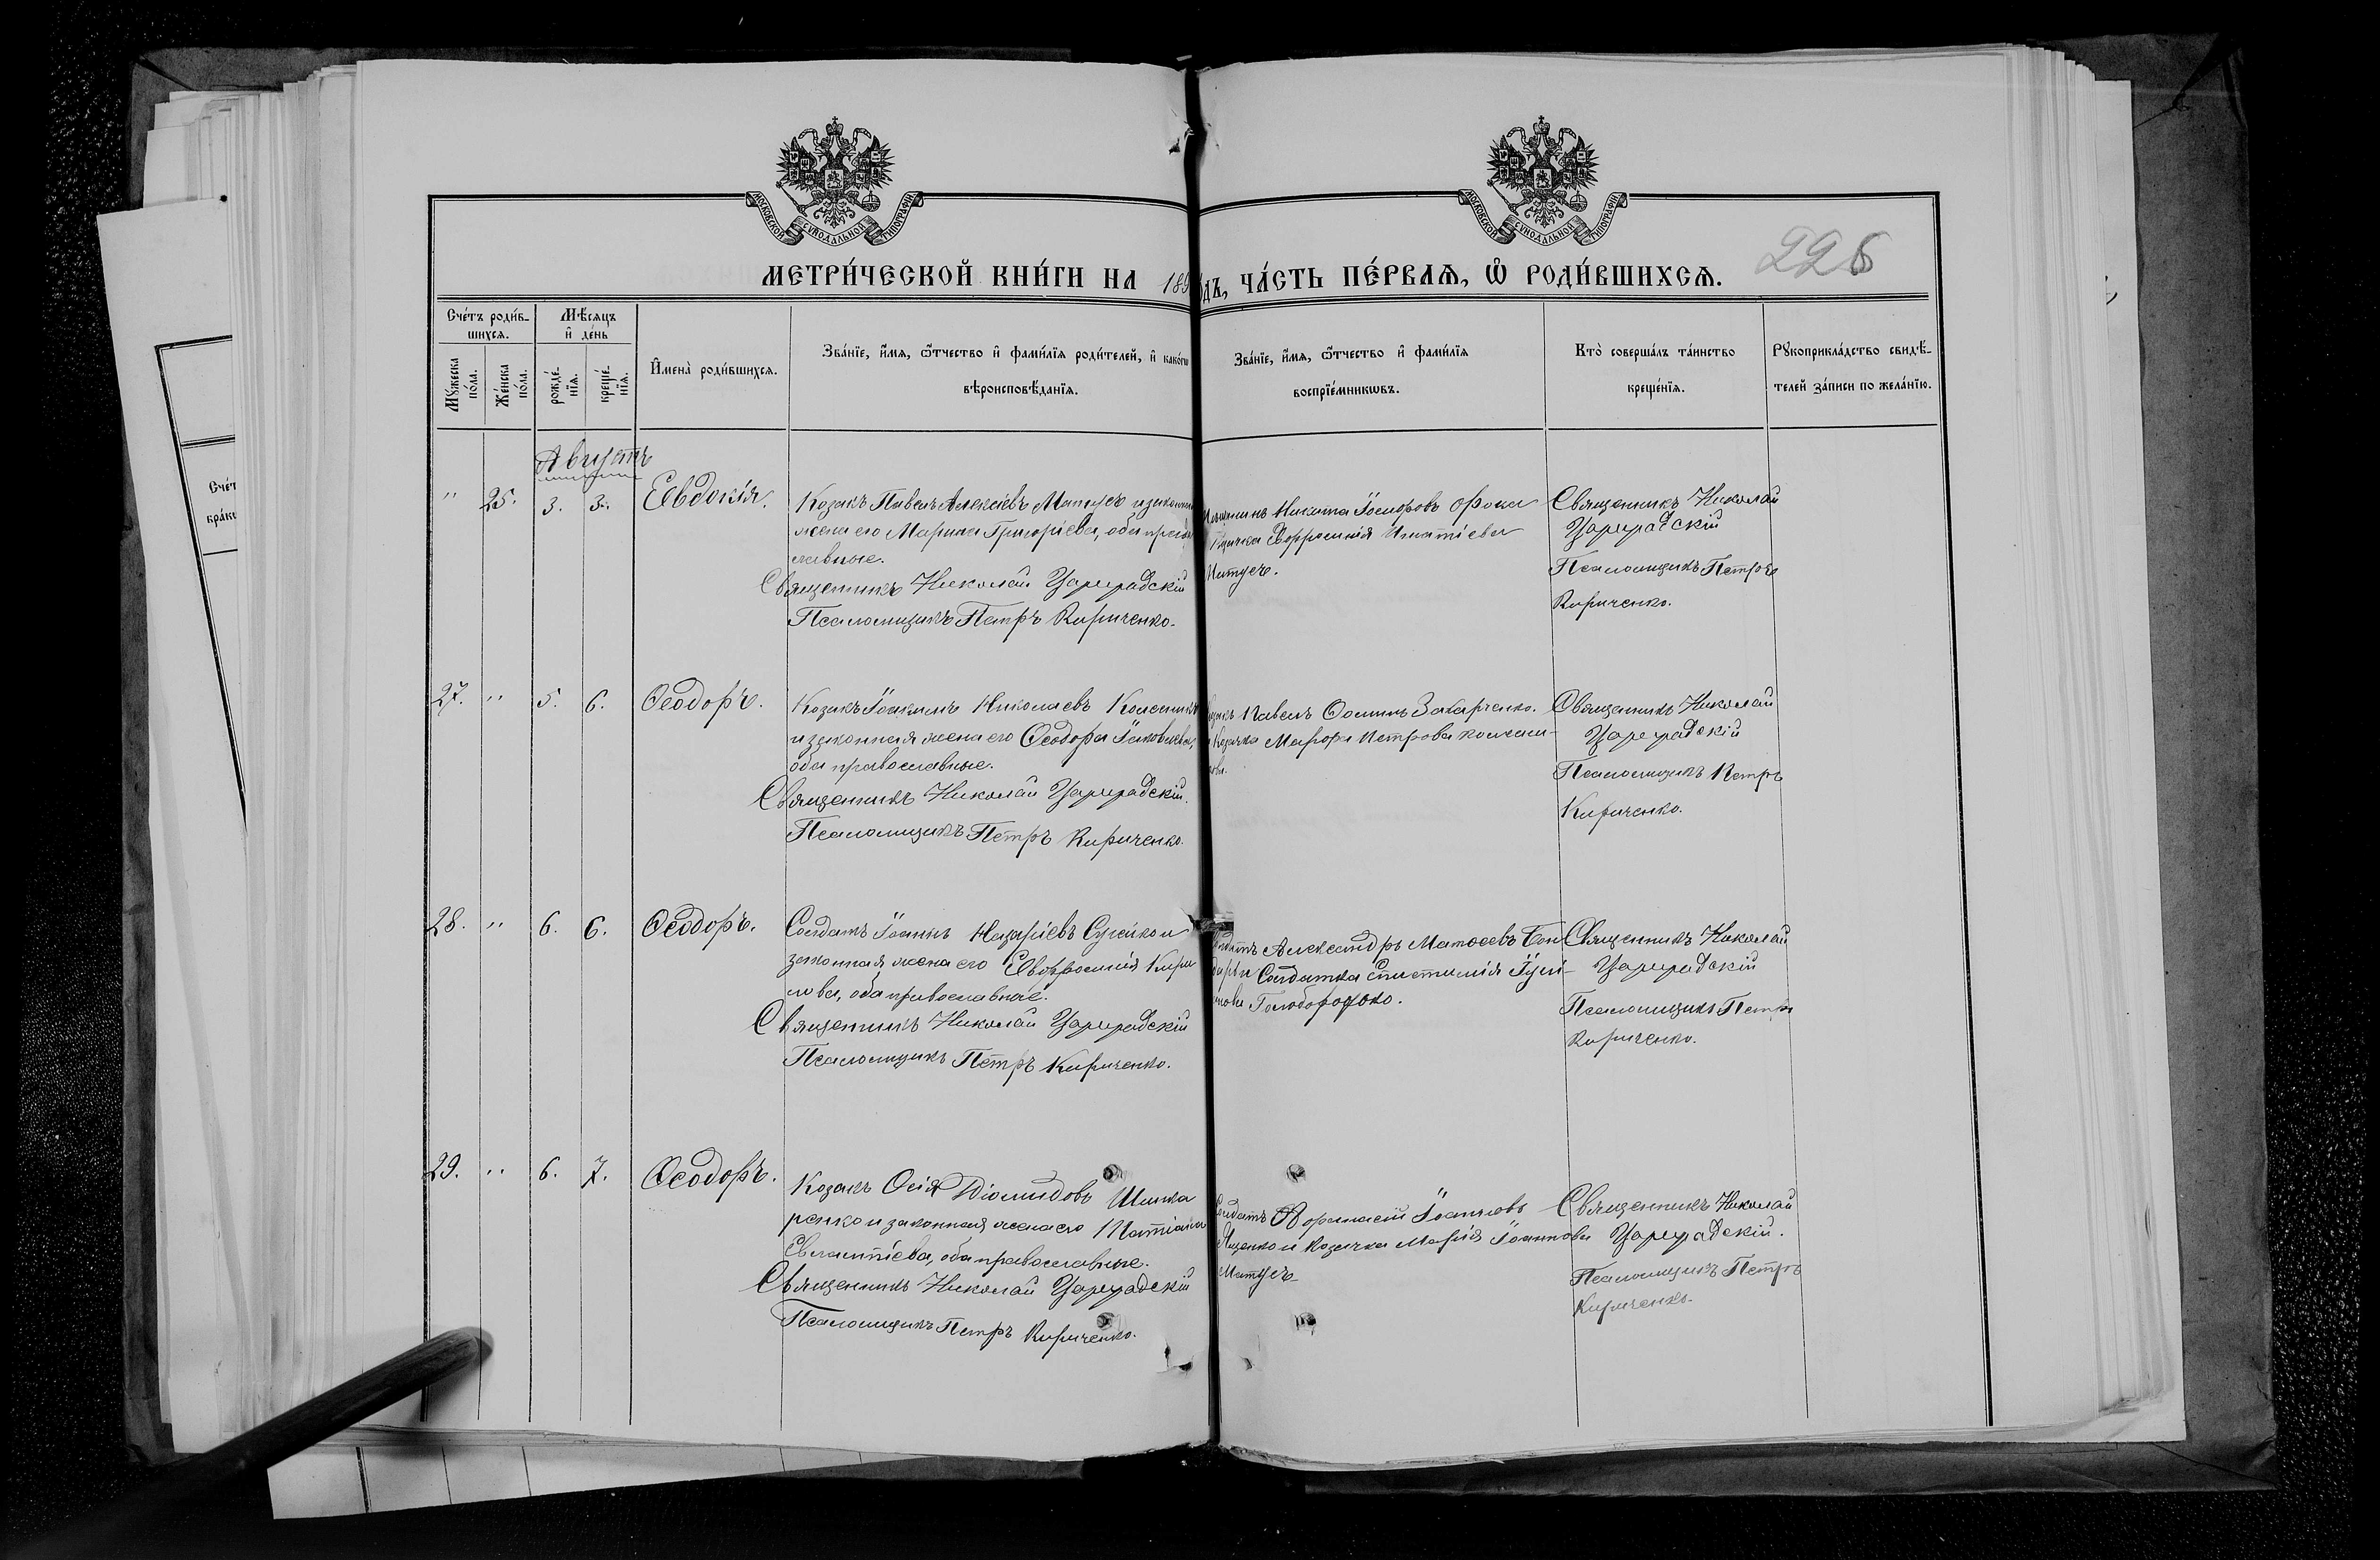 МОСКОВСКОЙ СУНОДАЛЬНОЙ ТИПОГРАФІИ
МОСКОВСКОЙ СУНОДАЛЬНОЙ ТИПОГРАФІИ
226
МЕТРИ́ЧЕСКОЙ КНИ́ГИ НА 189 ДЪ, ЧА́СТЬ ПЕ́РВАѦ, Ѡ҆ РОДИ́ВШИХСѦ.
Сче́тъ роди́в-
шихсѧ.
Мꙋ́жеска по́ла.
Же́нска по́ла.
Мѣ́сѧцъ
и҆ де́нь
рожде́-
нїѧ.
креще́-
нїѧ.
И҆мена̀ роди́вшихсѧ.
Зва́нїе, и҆́мѧ, ѻ҆́тчество и҆ фами́лїѧ роди́телей, и҆
вѣроисповѣ́данїѧ.
Зва́нїе, и҆́мѧ, ѻ҆́тчество и҆ фами́лїѧ
воспрїе́мникѡвъ.
Кто̀ соверша́лъ та́инство
креще́нїѧ.
Рꙋкоприкла́дство свидѣ́-
телей за́писи по жела́нїю.
Августъ
" 25. 3. 3. Евдокія.
Козакъ Павелъ Алексіевъ Матусъ и законная
жена его Марина Григоріева, оба право
славные.
Священникъ Николай Цареградскій
Псаломщикъ Петръ Кириченко.
Никита
Евфросинія Игнатіева
Матусъ.
Священникъ Николай
Цареградскій
Псаломщикъ Петръ
Кириченко.
27. " 5. 6. Ѳеодоръ.
Козакъ Іоакимъ Николаевъ
и законная жена его Ѳеодора Іаковлева,
оба православные.
Священникъ Николай Цареградскій.
Псаломщикъ Петръ Кириченко.
Павелъ Ѳоминъ Захарченко.
и Козачка Марѳа Петрова
Священникъ Николай
Цареградскій
Псаломщикъ Петръ
Кириченко.
28. " 6. 6. Ѳеодоръ.
Солдатъ Іоаннъ Назаріевъ
законная жена его Евфросинія Кири
лова, оба православные.
Священникъ Николай Цареградскій
Псаломщикъ Петръ Кириченко.
Александръ Матѳеевъ Бон
Солдатка Епистимія Іулі-
Голобородько.
Священникъ Николай
Цареградскій
Псаломщикъ Петръ
Кириченко.
29. " 6. 7. Ѳеодоръ.
Козакъ Осія Діомидовъ Шинка
ренко и законная жена его Татіана
Евлампіева, оба православные.
Священникъ Николай Цареградскій
Псаломщикъ Петръ Кириченко.
Солдатъ Аѳанасій Іоанновъ
Яценко и Козачка Марія Іоаннова
Матусъ
Священникъ Николай
Цареградскій.
Псаломщикъ Петръ
Кириченко.